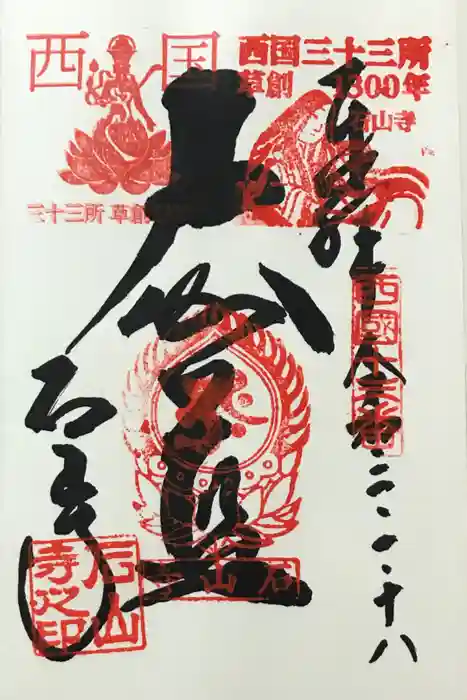 西国
三十三所 草創
西国三十三所
草創 1300年
石山寺
西國十三番
十八
大伽藍
石山寺
石山寺
石山寺之印